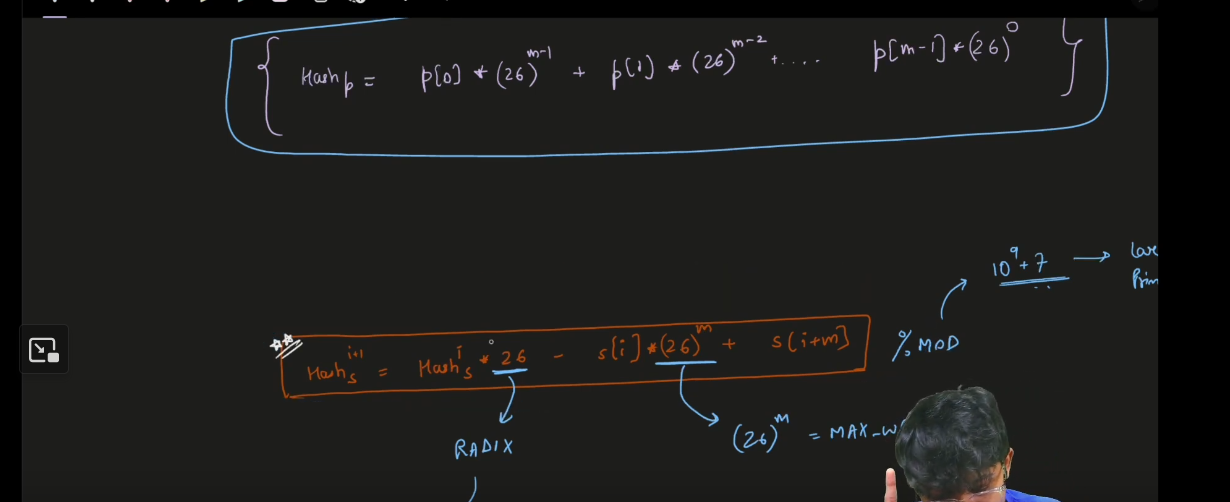 Hash_p = p[0] * (26)^{m-1} + p[1] * (26)^{m-2} + .... p[m-1] * (26)^0
10^9 + 7 →
Hash_s^{i+1} = Hash_s^i * 26 - s[i] * (26)^m + s[i+m] % MOD
RADIX
(26)^m = MAX-W